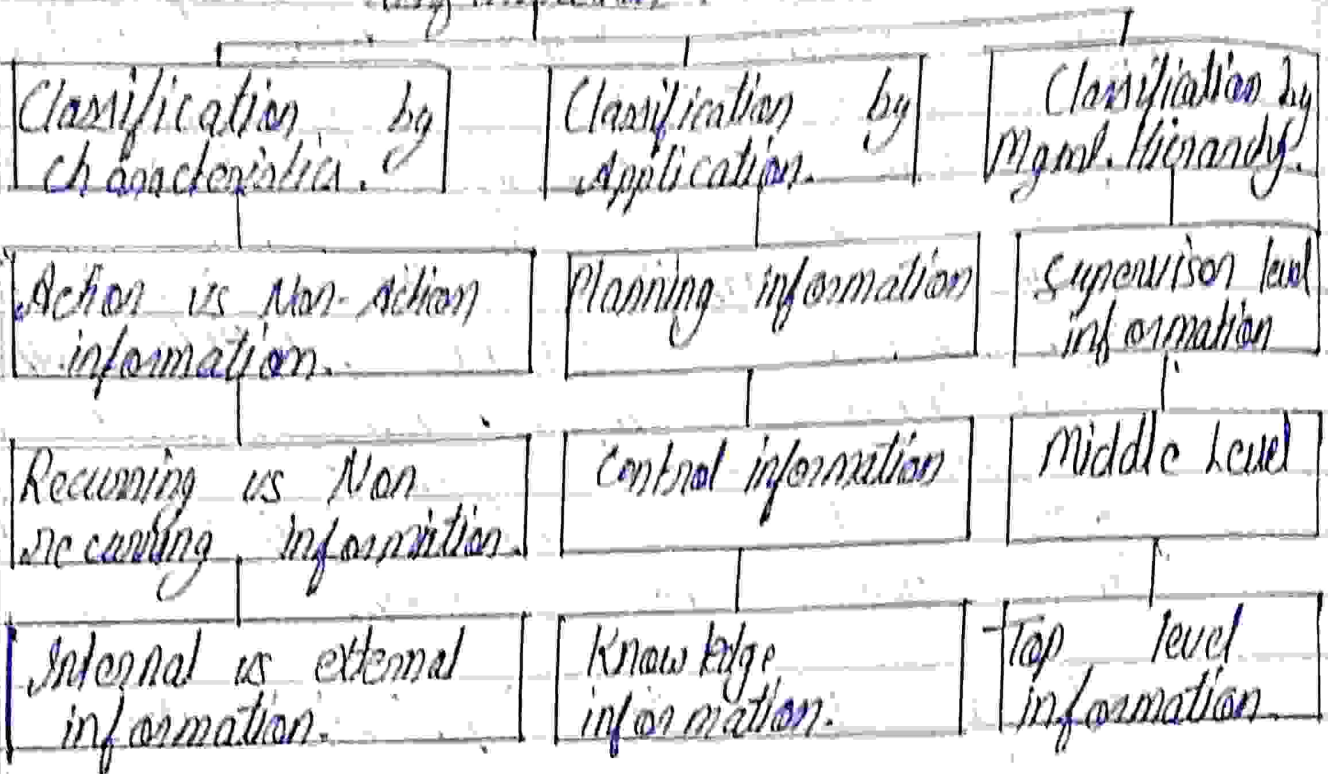 Classification by
characteristics.
Action vs Non-Action
information.
Recurring vs Non
recurring information.
Internal vs external
information.
Classification by
Application.
Planning information
Control information
Knowledge
information.
Classification by
Mgmt. Hierarchy.
Supervisor level
information
Middle Level
Top level
information.